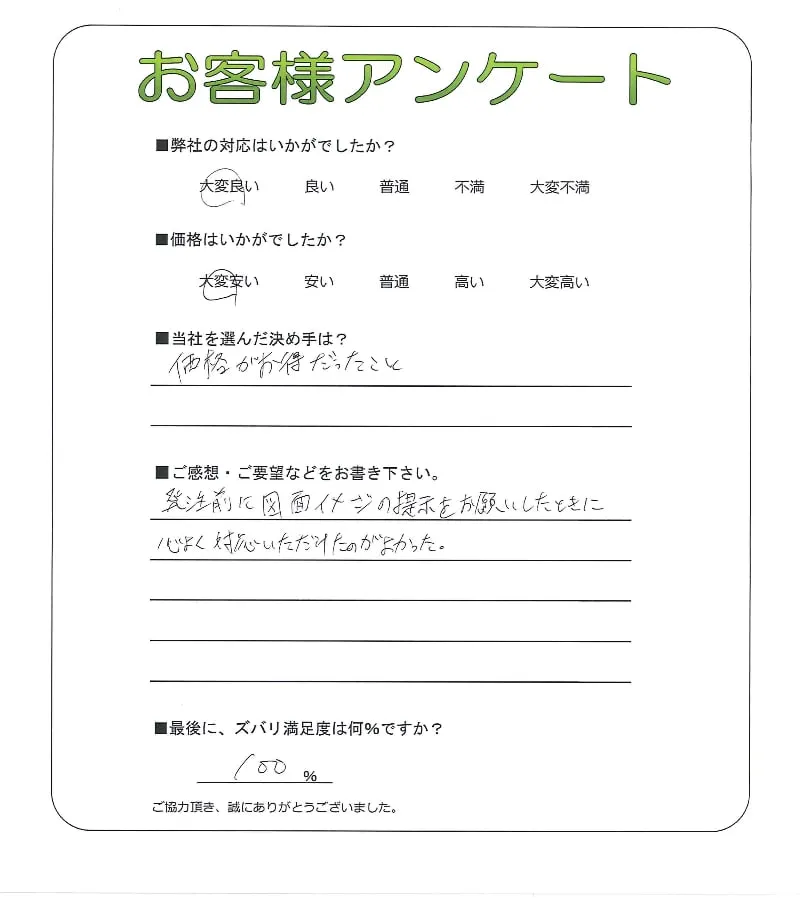 お客様アンケート
■弊社の対応はいかがでしたか？
大変良い 良い 普通 不満 大変不満
■価格はいかがでしたか？
大変安い 安い 普通 高い 大変高い
■当社を選んだ決め手は？
価格がお得だったこと
■ご感想・ご要望などをお書き下さい。
発注前に図面イメージの提示をお願いしたときに
心よく対応いただけたのがよかった。
■最後に、ズバリ満足度は何％ですか？
100 %
ご協力頂き、誠にありがとうございました。